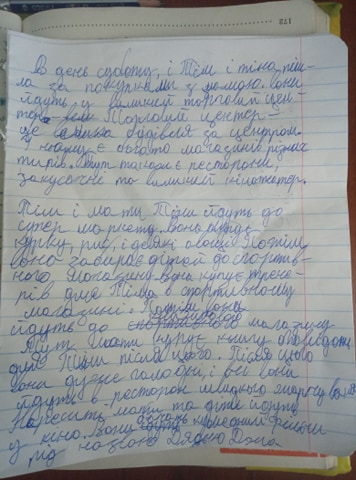 172
В день суботи, і Тім і Тіна піш-
ла за покупками з мамою. Вони
йдуть у великий торговий цен-
тер. Торговий центер-
це велика будівля за центром.
У ньому є багато магазинів різних
типів. Тут також є ресторани,
закусочні та великий кінотеатр.
Тім і мати Тіни йдуть до
супер маркету. Вона купує
курку, рис, і деякі овощі. Потім
вона забирає дітей до спортив-
ного магазину. Вона купує трене-
рів для Тіма в спортивному
магазині. Потім вони
йдуть до магазину
Тут мати купує книгу
для Тіни після цього. Після цього
вона дуже голодні, і всі вони
йдуть в ресторан швидкого
мати та діти йдуть
у кіно. Вони комедний фільм
під назвою Дядько Дона